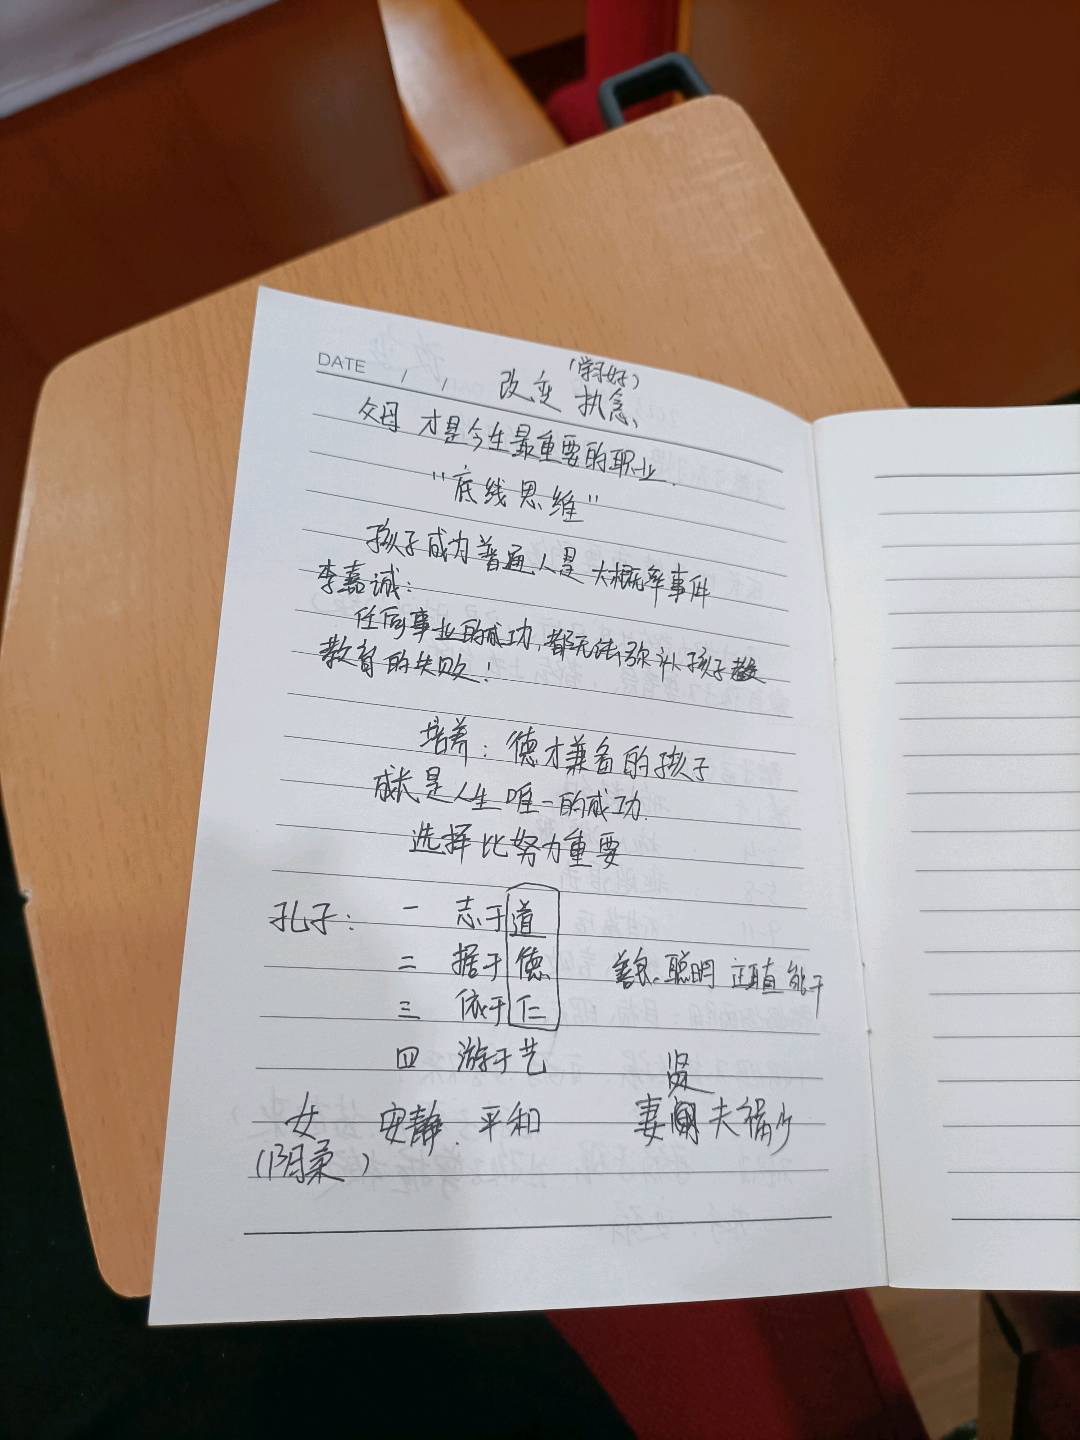 DATE / /
(学习好)
改变 执念
父母 才是今生最重要的职业.
"底线思维"
孩子成为普通人是 大概率事件
李嘉诚:
任何事业的成功,都无法弥补孩子
教育的失败!
培养: 德才兼备的孩子
成长是人生唯一的成功.
选择比努力重要
孔子: 一 志于道
二 据于德
善良.聪明 正直 能干
三 依于仁
四 游于艺
贤
女 安静.平和 妻 夫祸少
(阴柔)